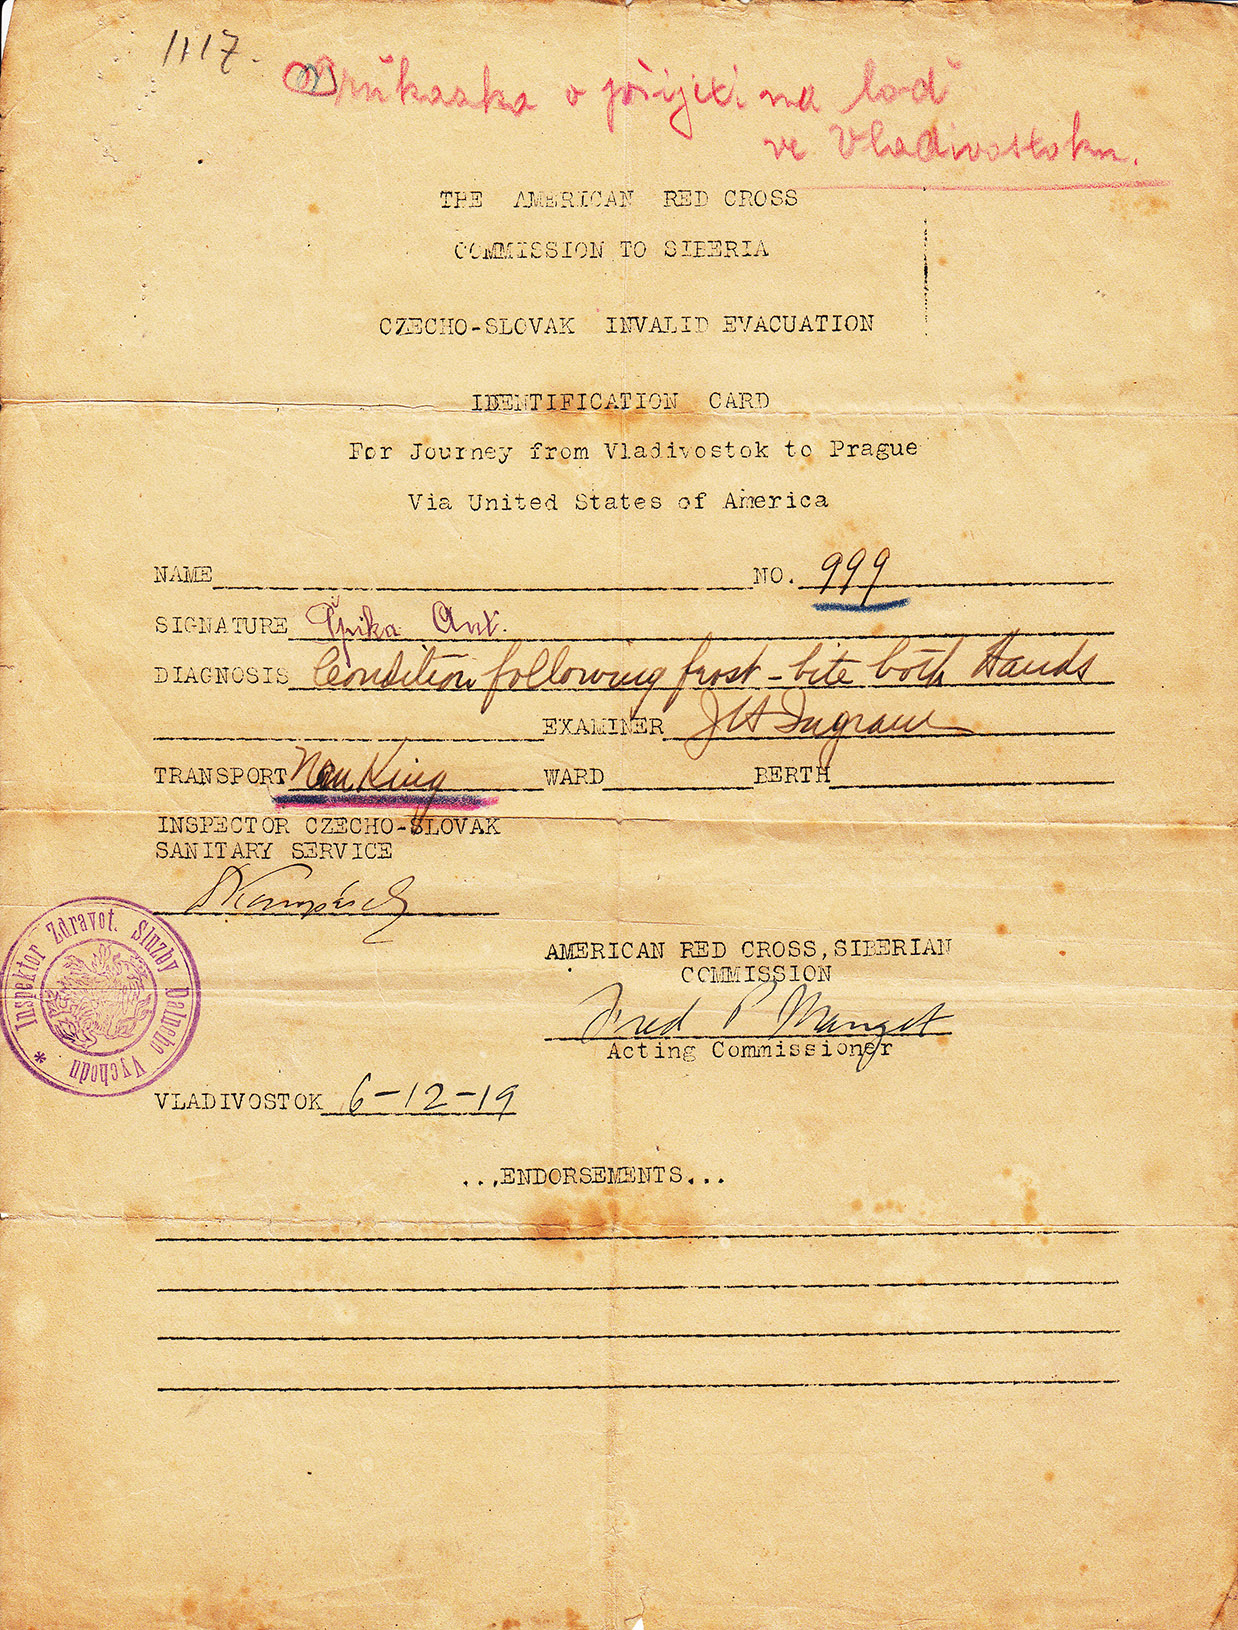 1117.
o přijetí na loď
ve Vladivostoku.
THE AMERICAN RED CROSS
COMMISSION TO SIBERIA
CZECHO-SLOVAK INVALID EVACUATION
IDENTIFICATION CARD
For Journey from Vladivostok to Prague
Via United States of America
NAME NO. 999
SIGNATURE Špika Ant.
DIAGNOSIS Condition following frost-bite both Hands
EXAMINER J H Ingram
TRANSPORT Nan King WARD BERTH
INSPECTOR CZECHO-SLOVAK
SANITARY SERVICE
Inspektor Zdravot. Služby Dalneho Vychodu *
AMERICAN RED CROSS, SIBERIAN
COMMISSION
Fred P Manget
Acting Commissioner
VLADIVOSTOK 6-12-19
...ENDORSEMENTS...